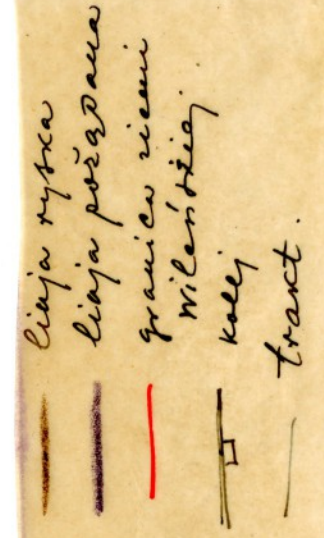 linja ryska
linja požądana
granica ziemi
Wileńskiej
kolej
trakt.